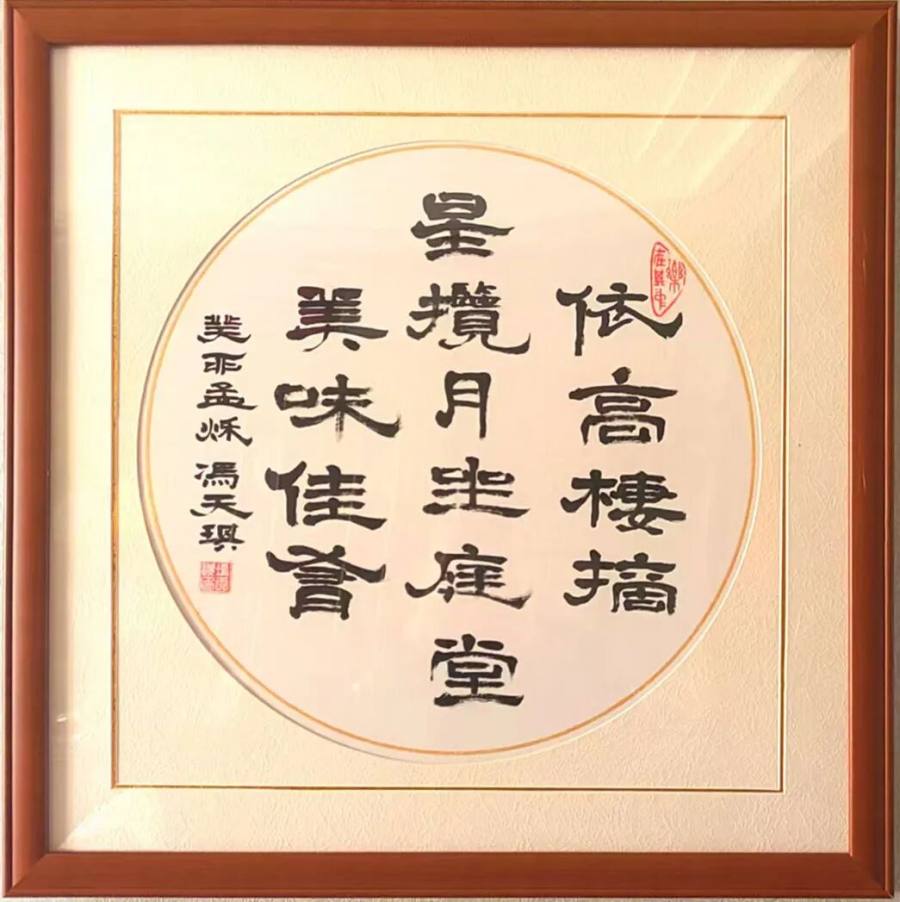 依高樓摘
星攬月坐庭堂
美味佳肴
癸卯孟秋 馮天琪